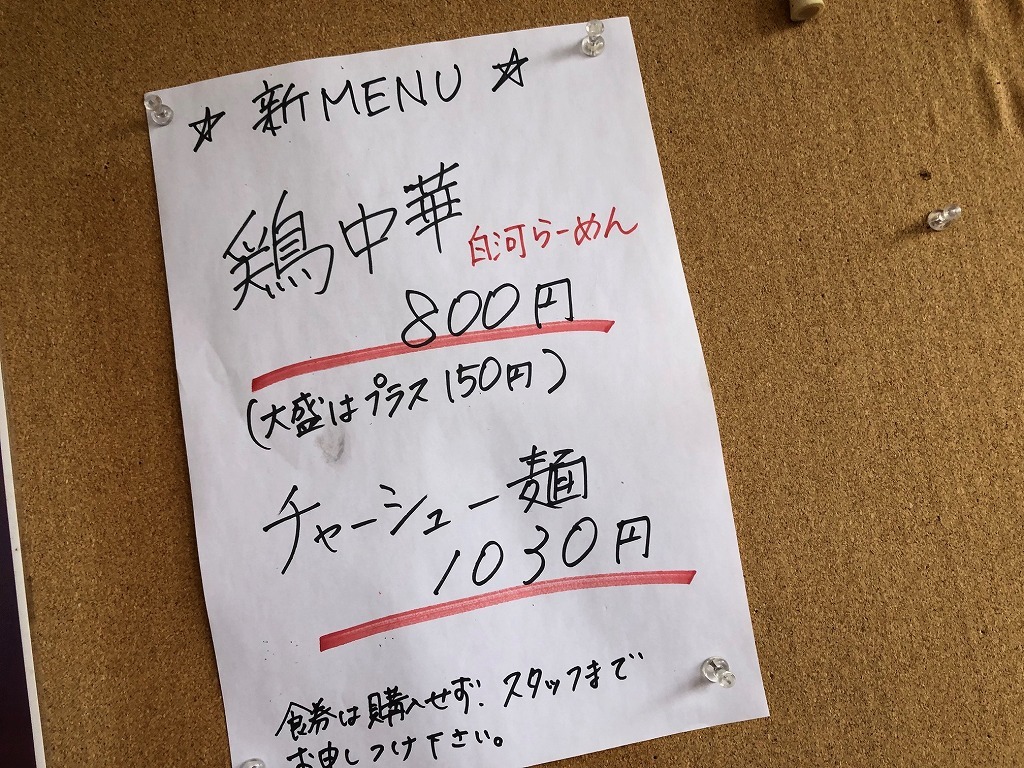 ☆ 新MENU ☆
鶏中華
白河らーめん
800円
(大盛はプラス150円)
チャーシュー麺
1030円
食券は購入せず、スタッフまで
お申しつけ下さい。